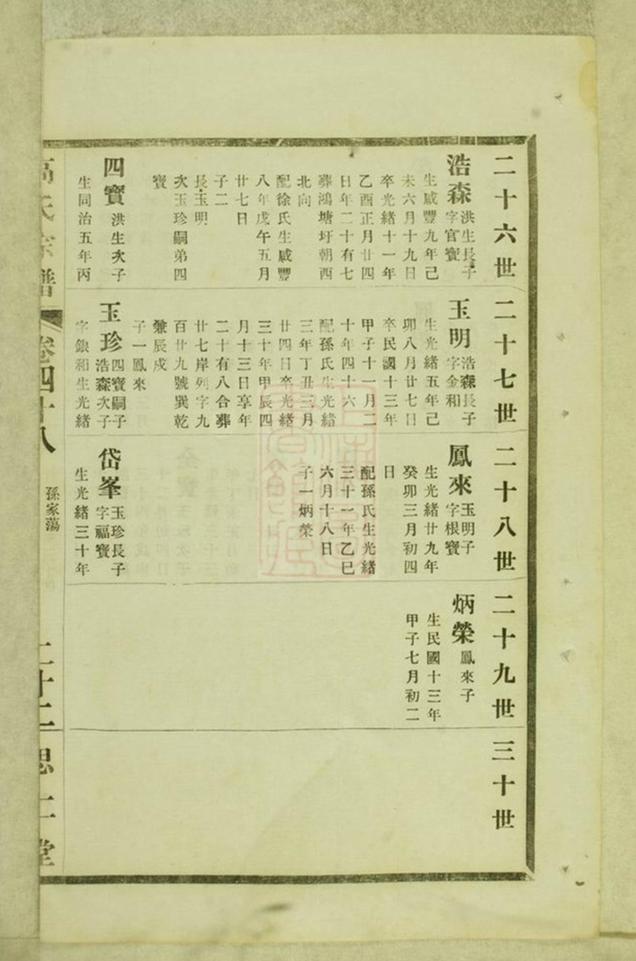 二十六世
二十七世
二十八世
二十九世
三十世
浩森
洪生長子
字官寶
生咸豐九年己
未六月十九日
卒光緒十一年
乙酉正月廿四
日年二十有七
葬鴻塘圩朝西
北向
配徐氏生咸豐
八年戊午五月
廿七日
子二
長玉明
次玉珍嗣弟四
寶
四寶
洪生次子
生同治五年丙
玉明
浩森長子
字金和
生光緒五年己
卯八月廿七日
卒民國十三年
甲子十一月二
十年四十六
配孫氏生光緒
三年丁丑三月
廿四日卒光緒
三十年甲辰四
月十三日享年
二十有八合葬
廿七岸列字九
百廿九號巽乾
兼辰戍
子一鳳來
玉珍
四寶嗣子
浩森次子
字銀和生光緒
鳳來
玉明子
字根寶
生光緒廿九年
癸卯三月初四
日
配孫氏生光緒
三十一年乙巳
六月十八日
子一炳榮
岱峯
玉珍長子
字福寶
生光緒三十年
炳榮
鳳來子
生民國十三年
甲子七月初二
高氏宗譜
卷四十八
孫家蕩
二十二
思仁堂